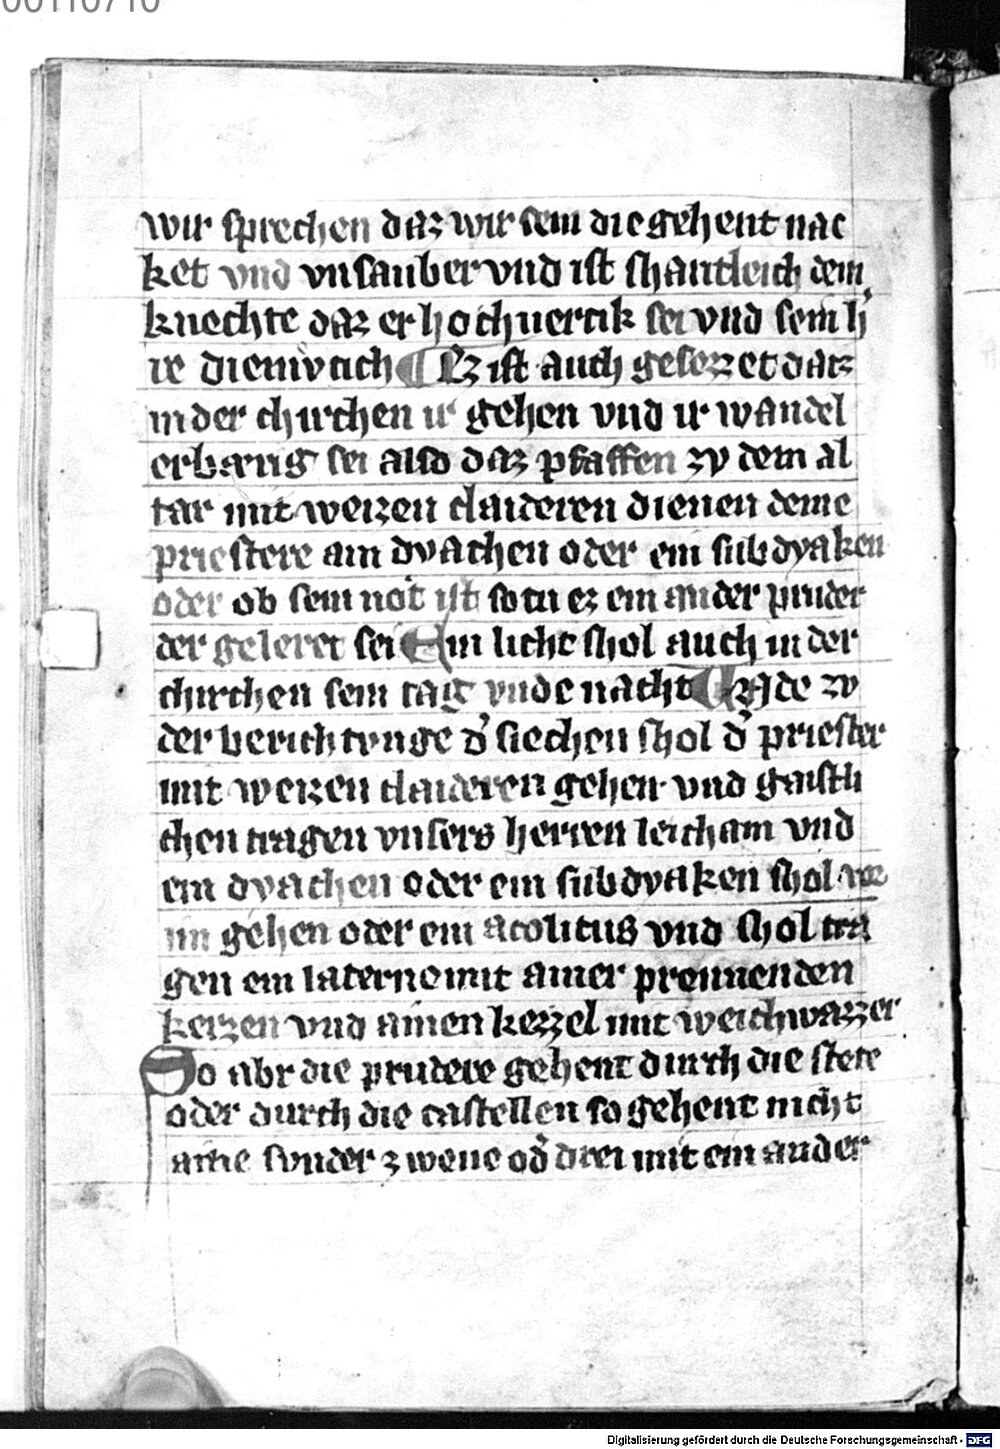 00110710
wir sprechen daz wir sein die gehent nac
ket vnd vnsauber vnd ist shantleich dem
knechte daz er hochuertik sei vnd sein h̛
re diemvtich ¶ Ez ist auch gesezzet datz
in der chirchen ir gehen vnd ir wandel
erbærig sei also daz pfaffen zv dem al
tar mit weizen claideren dienen deme
priestere ain dyachen oder ein subdyaken
oder ob sein not ist so tu ez ein ander pruder
der geleret sei Ein licht shol auch in der
chirchen sein tag vnde nacht ¶ zv
der berichtvnge d̛ siechen shol d̛ priester
mit weizen claideren gehen vnd gaistli
chen tragen vnsers herren leicham vnd
ein dyachen oder ein subdyaken shol vor
im gehen oder ein acolitus vnd shol tra
gen ein laterne mit ainer prennenden
kerzen vnd ainen kezzel mit weichwazzer
So abr die prudere gehent durch die stete
oder durch die castellen so gehent nicht
aine svnder zwene od̛ drei mit ein ander
Digitalisierung gefördert durch die Deutsche Forschungsgemeinschaft - DFG